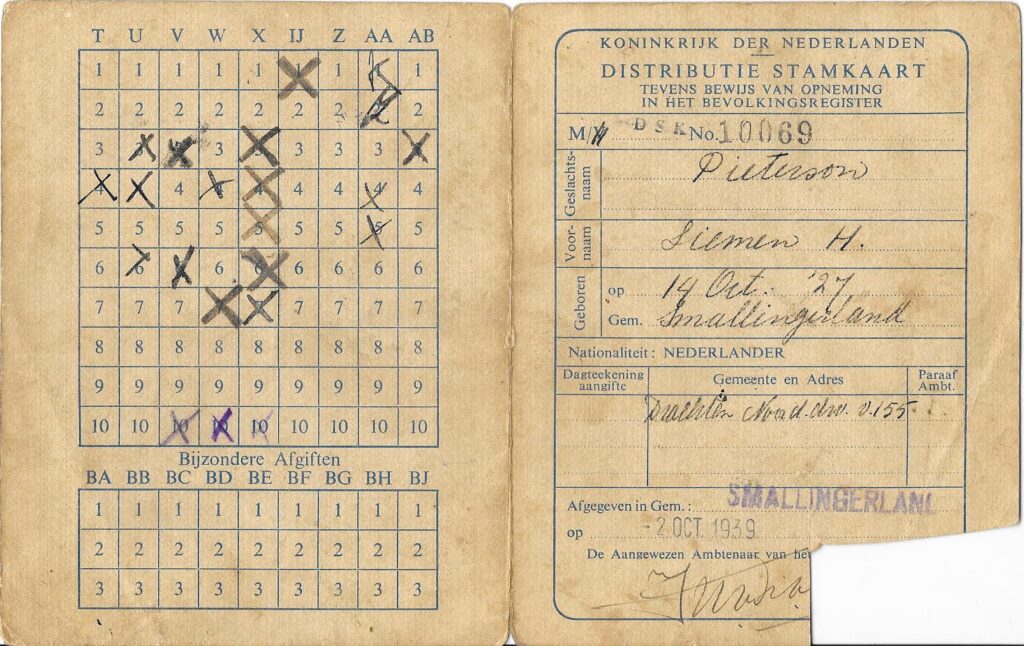 T U V W X IJ Z AA AB
1 1 1 1 1 1 1 1 1
2 2 2 2 2 2 2 2 2
3 3 3 3 3 3 3 3 3
4 4 4 4 4 4 4 4 4
5 5 5 5 5 5 5 5 5
6 6 6 6 6 6 6 6 6
7 7 7 7 7 7 7 7 7
8 8 8 8 8 8 8 8 8
9 9 9 9 9 9 9 9 9
10 10 10 10 10 10 10 10 10
Bijzondere Afgiften
BA BB BC BD BE BF BG BH BJ
1 1 1 1 1 1 1 1 1
2 2 2 2 2 2 2 2 2
3 3 3 3 3 3 3 3 3
KONINKRIJK DER NEDERLANDEN
DISTRIBUTIE STAMKAART
TEVENS BEWIJS VAN OPNEMING
IN HET BEVOLKINGSREGISTER
M/ DSK No. 10069
Geslachts-
naam
Pieterson
Voor-
naam
Siemen H.
Geboren
op 14 Oct. '27
Gem. Smallingerland
Nationaliteit: NEDERLANDER
Dagteekening
aangifte
Gemeente en Adres
Paraaf
Ambt.
Drachten Noord. dw. v. 155
Afgegeven in Gem.: SMALLINGERLAND
op -2 OCT. 1939
De Aangewezen Ambtenaar van het